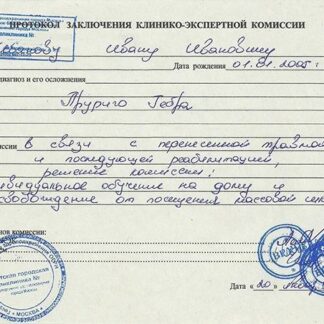 ПРОТОКОЛ ЗАКЛЮЧЕНИЯ КЛИНИКО-ЭКСПЕРТНОЙ КОМИССИИ
поликлиника №
Ивану Ивановичу
Дата рождения 01.01.2005
диагноз и его осложнения
Пруриго Гебра
иссии в связи с перенесенной травмой
и последующей реабилитацией,
решение комиссии:
ивидуальное обучение на дому и
свобождение от посещения массовой
нов комиссии:
тская городская
поликлиника №
МОСКВА
Дата «20»